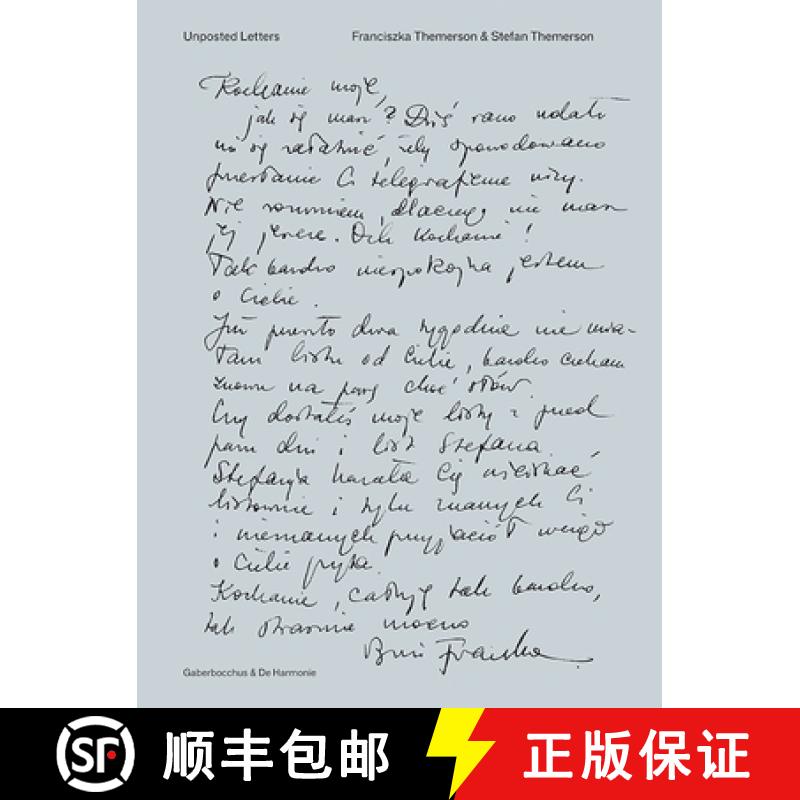 Unposted Letters
Franciszka Themerson & Stefan Themerson
Kochanie moje,
jak się masz? Dziś rano udało
mi się załatwić, żeby spowodowano
przesłanie Ci telegraficzne wizy.
Nie rozumiem, dlaczego nie masz
jej jeszcze. Och kochanie!
Tak bardzo niespokojna jestem
o Ciebie.
Już przeszło dwa tygodnie nie mia-
łam listu od Ciebie, bardzo czekam
znowu na parę choć słów.
Czy dostałeś moje listy z przed
paru dni i list Stefana.
Stefania kazała Cię uściskać
listownie i tylu znanych Ci
i nieznanych przyjaciół wciąż
o Ciebie pyta.
Kochanie, całuję tak bardzo,
tak strasznie mocno
Franka
Gaberbocchus & De Harmonie
SF 顺丰包邮
正版保证